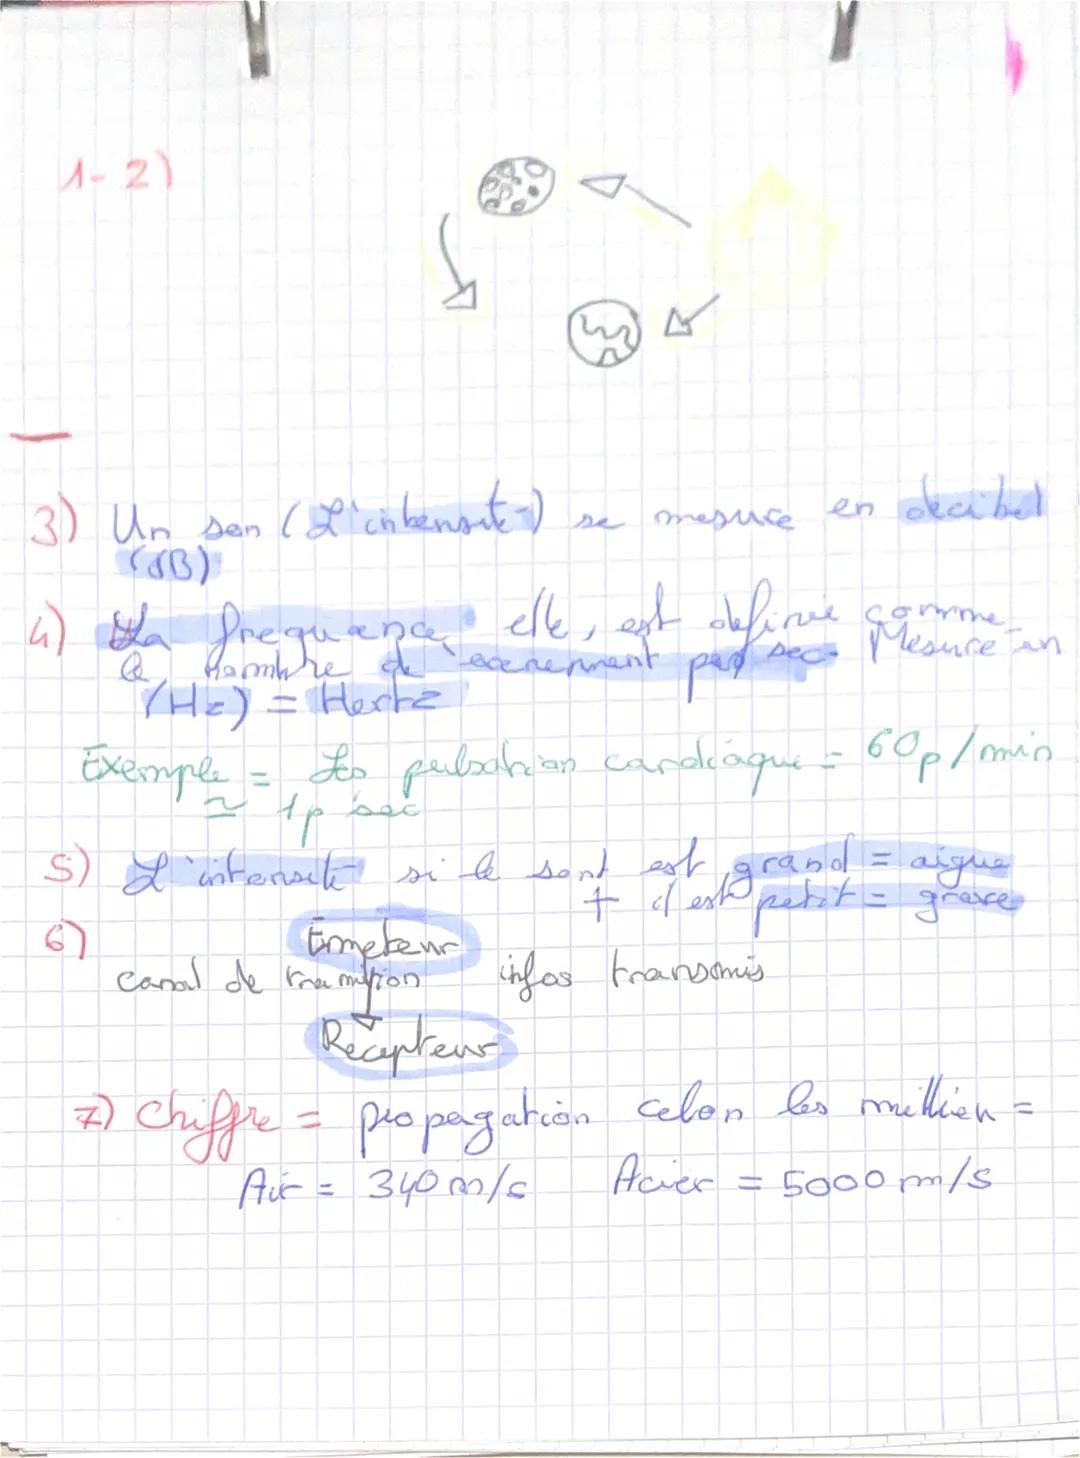 1-2)
3) Un son (L'intensité) se mesure en decibel
(dB)
4) La frequance elle, est definie comme
le nombre d'evenement par sec. Mesure en
(Hz) = Hertz
Exemple = Les pulsation cardiaque = 60p/min
≈ 1p sec
5) L'intensité si le sont est grand = aigue
+ il est petit = grave
6) Émeteur
canal de tramition infos transmis
Récepteur
7) Chiffre = propagation celon les millieu =
Air = 340 m/s Acier = 5000 m/s